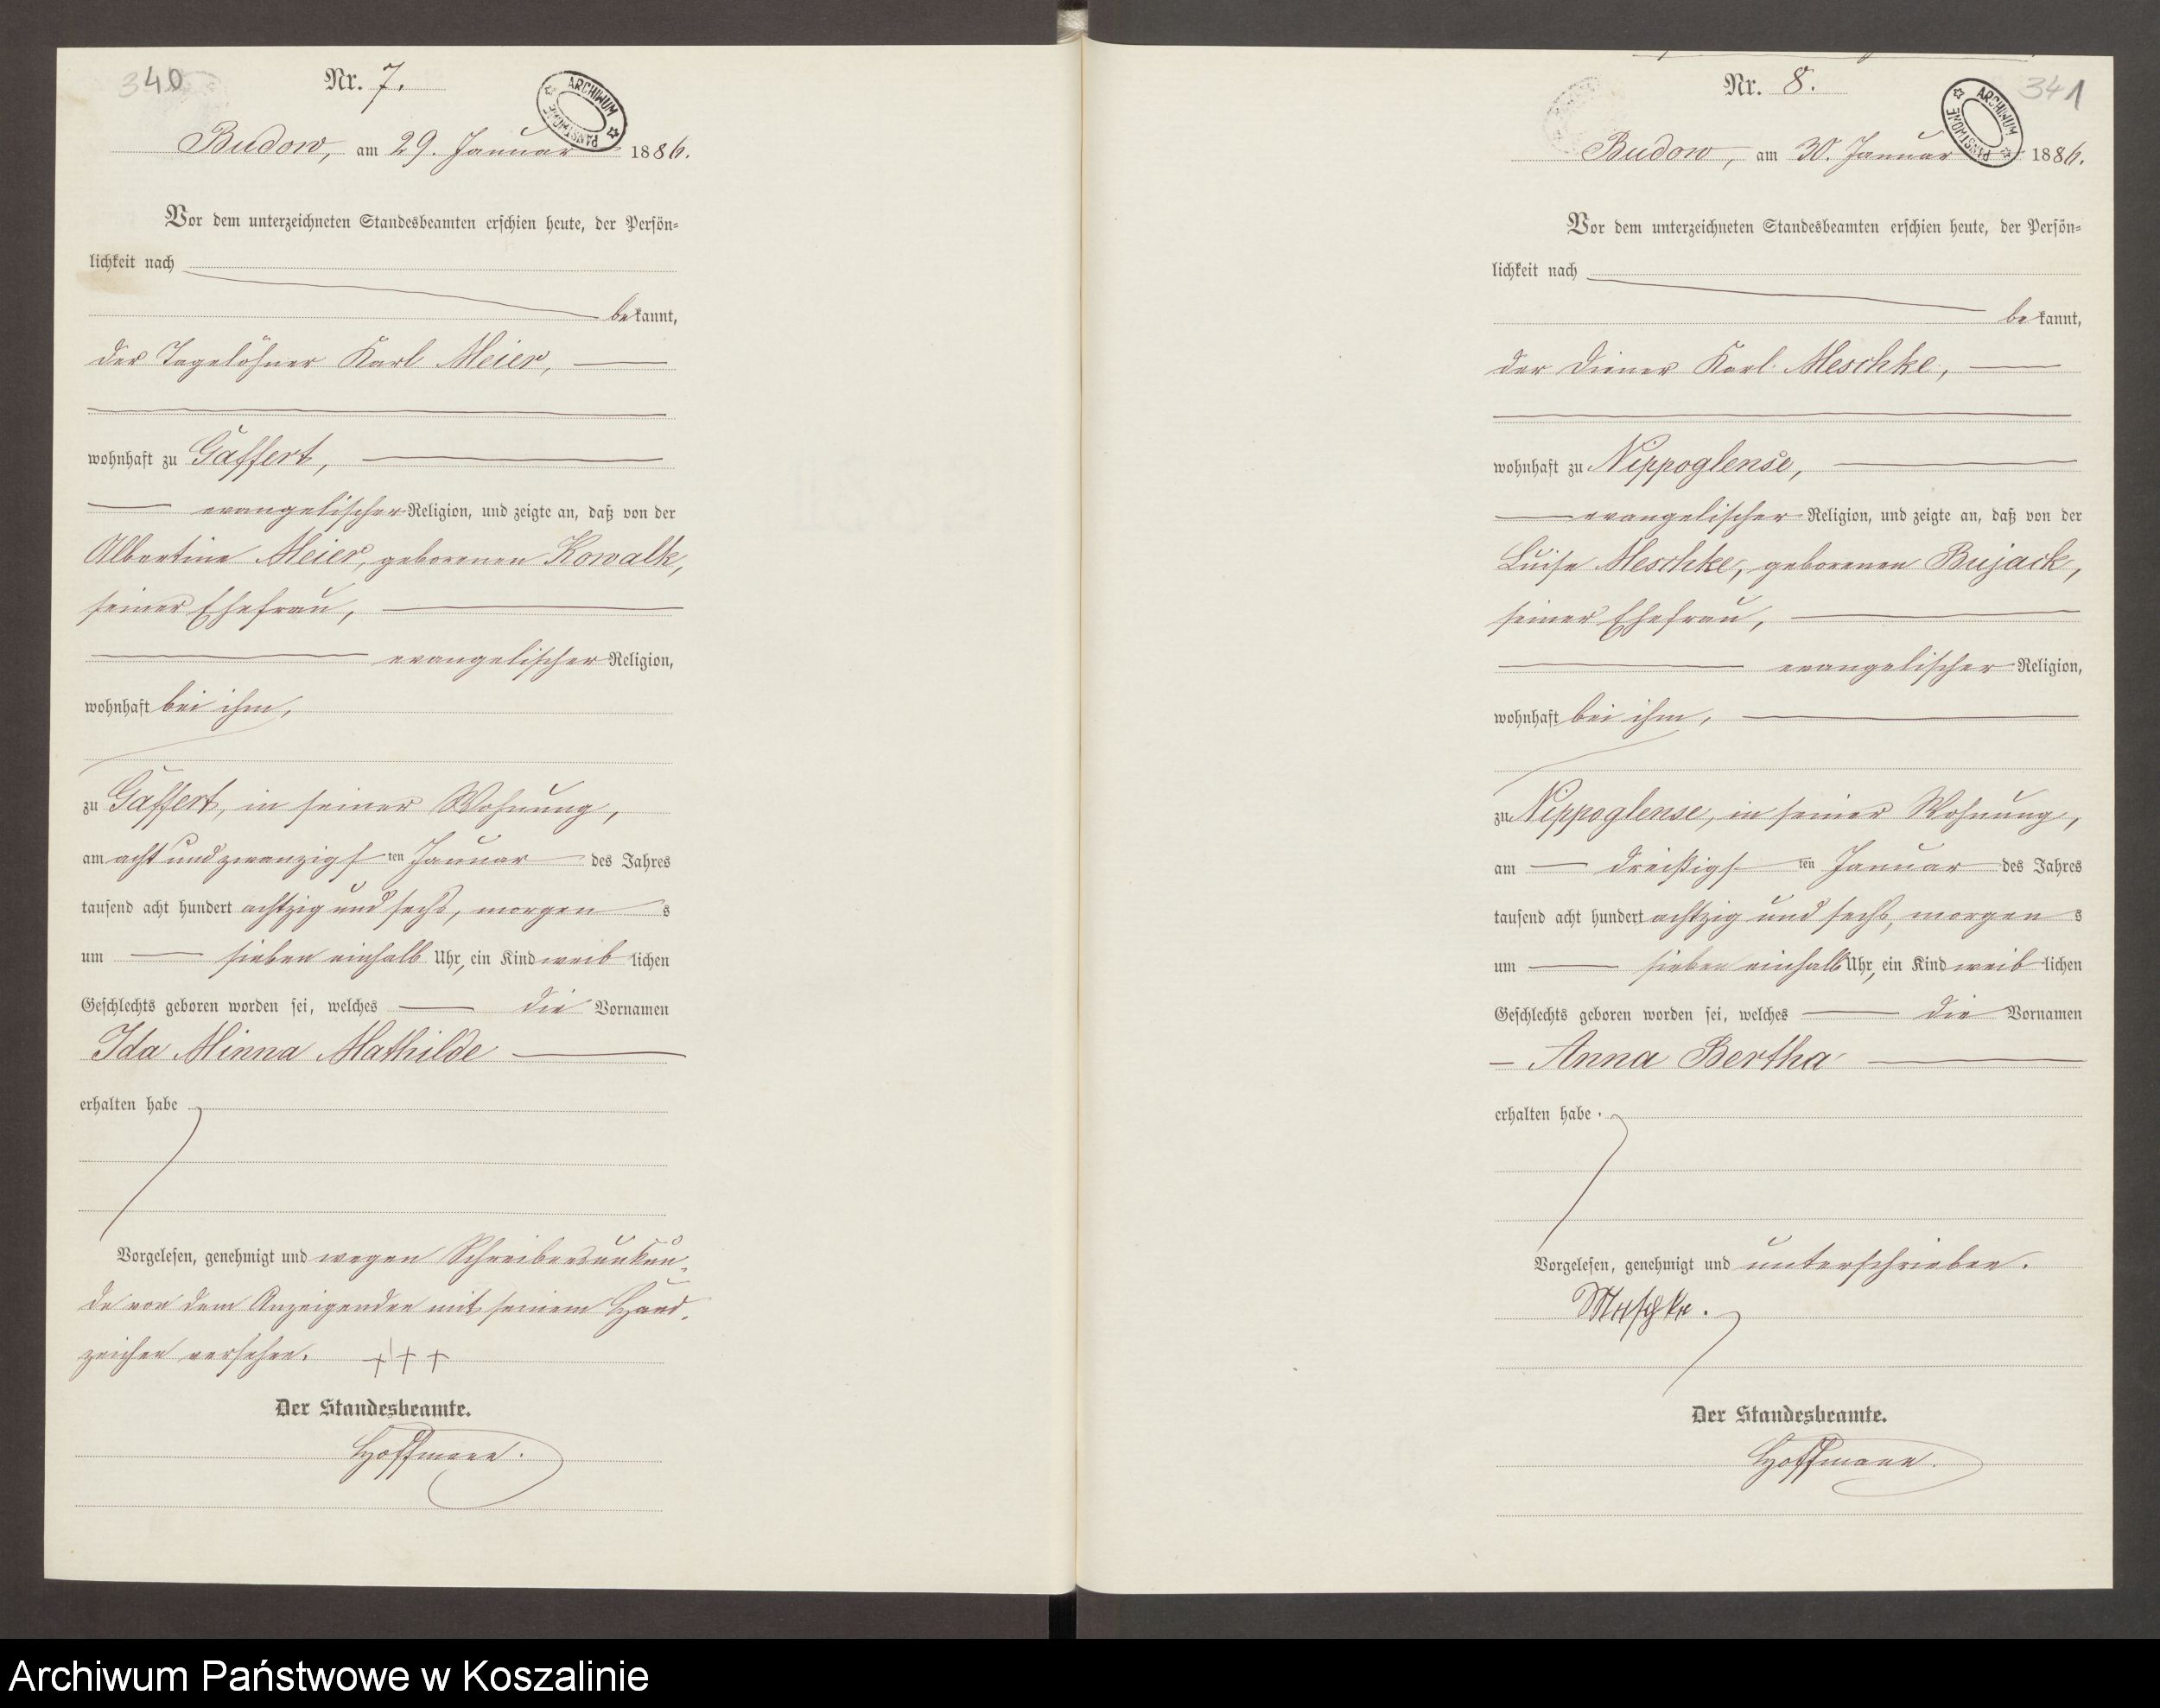 340
Nr. 7.
ARCHIWUM PAŃSTWOWE
Budow, am 29. Januar 1886.
Vor dem unterzeichneten Standesbeamten erschien heute, der Persön=
lichkeit nach
bekannt,
der Tagelöhner Karl Meier,
wohnhaft zu Gaffert,
evangelischer Religion, und zeigte an, daß von der
Albertine Meier, geborenen Kowalk,
seiner Ehefrau,
evangelischer Religion,
wohnhaft bei ihm,
zu Gaffert, in seiner Wohnung,
am acht und zwanzigsten Januar des Jahres
tausend acht hundert achtzig und sechs, morgens
um sieben einhalb Uhr, ein Kind weiblichen
Geschlechts geboren worden sei, welches die Vornamen
Ida Minna Mathilde
erhalten habe
Vorgelesen, genehmigt und wegen Schreibensunkun-
de von dem Anzeigenden mit seinem Hand-
zeichen versehen. +++
Der Standesbeamte.
Hoffmann.
341
Nr. 8.
ARCHIWUM PAŃSTWOWE
Budow, am 30. Januar 1886.
Vor dem unterzeichneten Standesbeamten erschien heute, der Persön=
lichkeit nach
bekannt,
der Diener Karl Meschke,
wohnhaft zu Nippoglense,
evangelischer Religion, und zeigte an, daß von der
Luise Meschke, geborenen Bujack,
seiner Ehefrau,
evangelischer Religion,
wohnhaft bei ihm,
zu Nippoglense, in seiner Wohnung,
am dreißigsten Januar des Jahres
tausend acht hundert achtzig und sechs, morgens
um sieben einhalb Uhr, ein Kind weiblichen
Geschlechts geboren worden sei, welches die Vornamen
Anna Bertha
erhalten habe.
Vorgelesen, genehmigt und unterschrieben.
Meschke.
Der Standesbeamte.
Hoffmann.
Archiwum Państwowe w Koszalinie